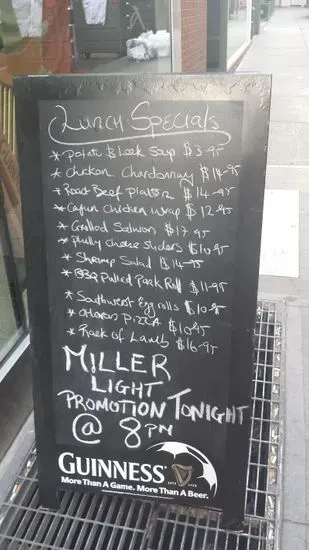 Lunch Specials
* Potato & Leek Soup $3.95
* Chicken Chardonnay $14.95
* Roast Beef Platter $14.95
* Cajun Chicken wrap $12.95
* Grilled Salmon $17.95
* philly cheese sliders $10.95
* Shrimp Salad $14.95
* BBQ Pulled Pork Roll $11.95
* Southwest Egg rolls $10.95
* PIZZA $10.95
* Rack of Lamb $16.95
MILLER
LIGHT
PROMOTION TONIGHT
@ 8PM
GUINNESS
ESTD 1759
More Than A Game. More Than A Beer.